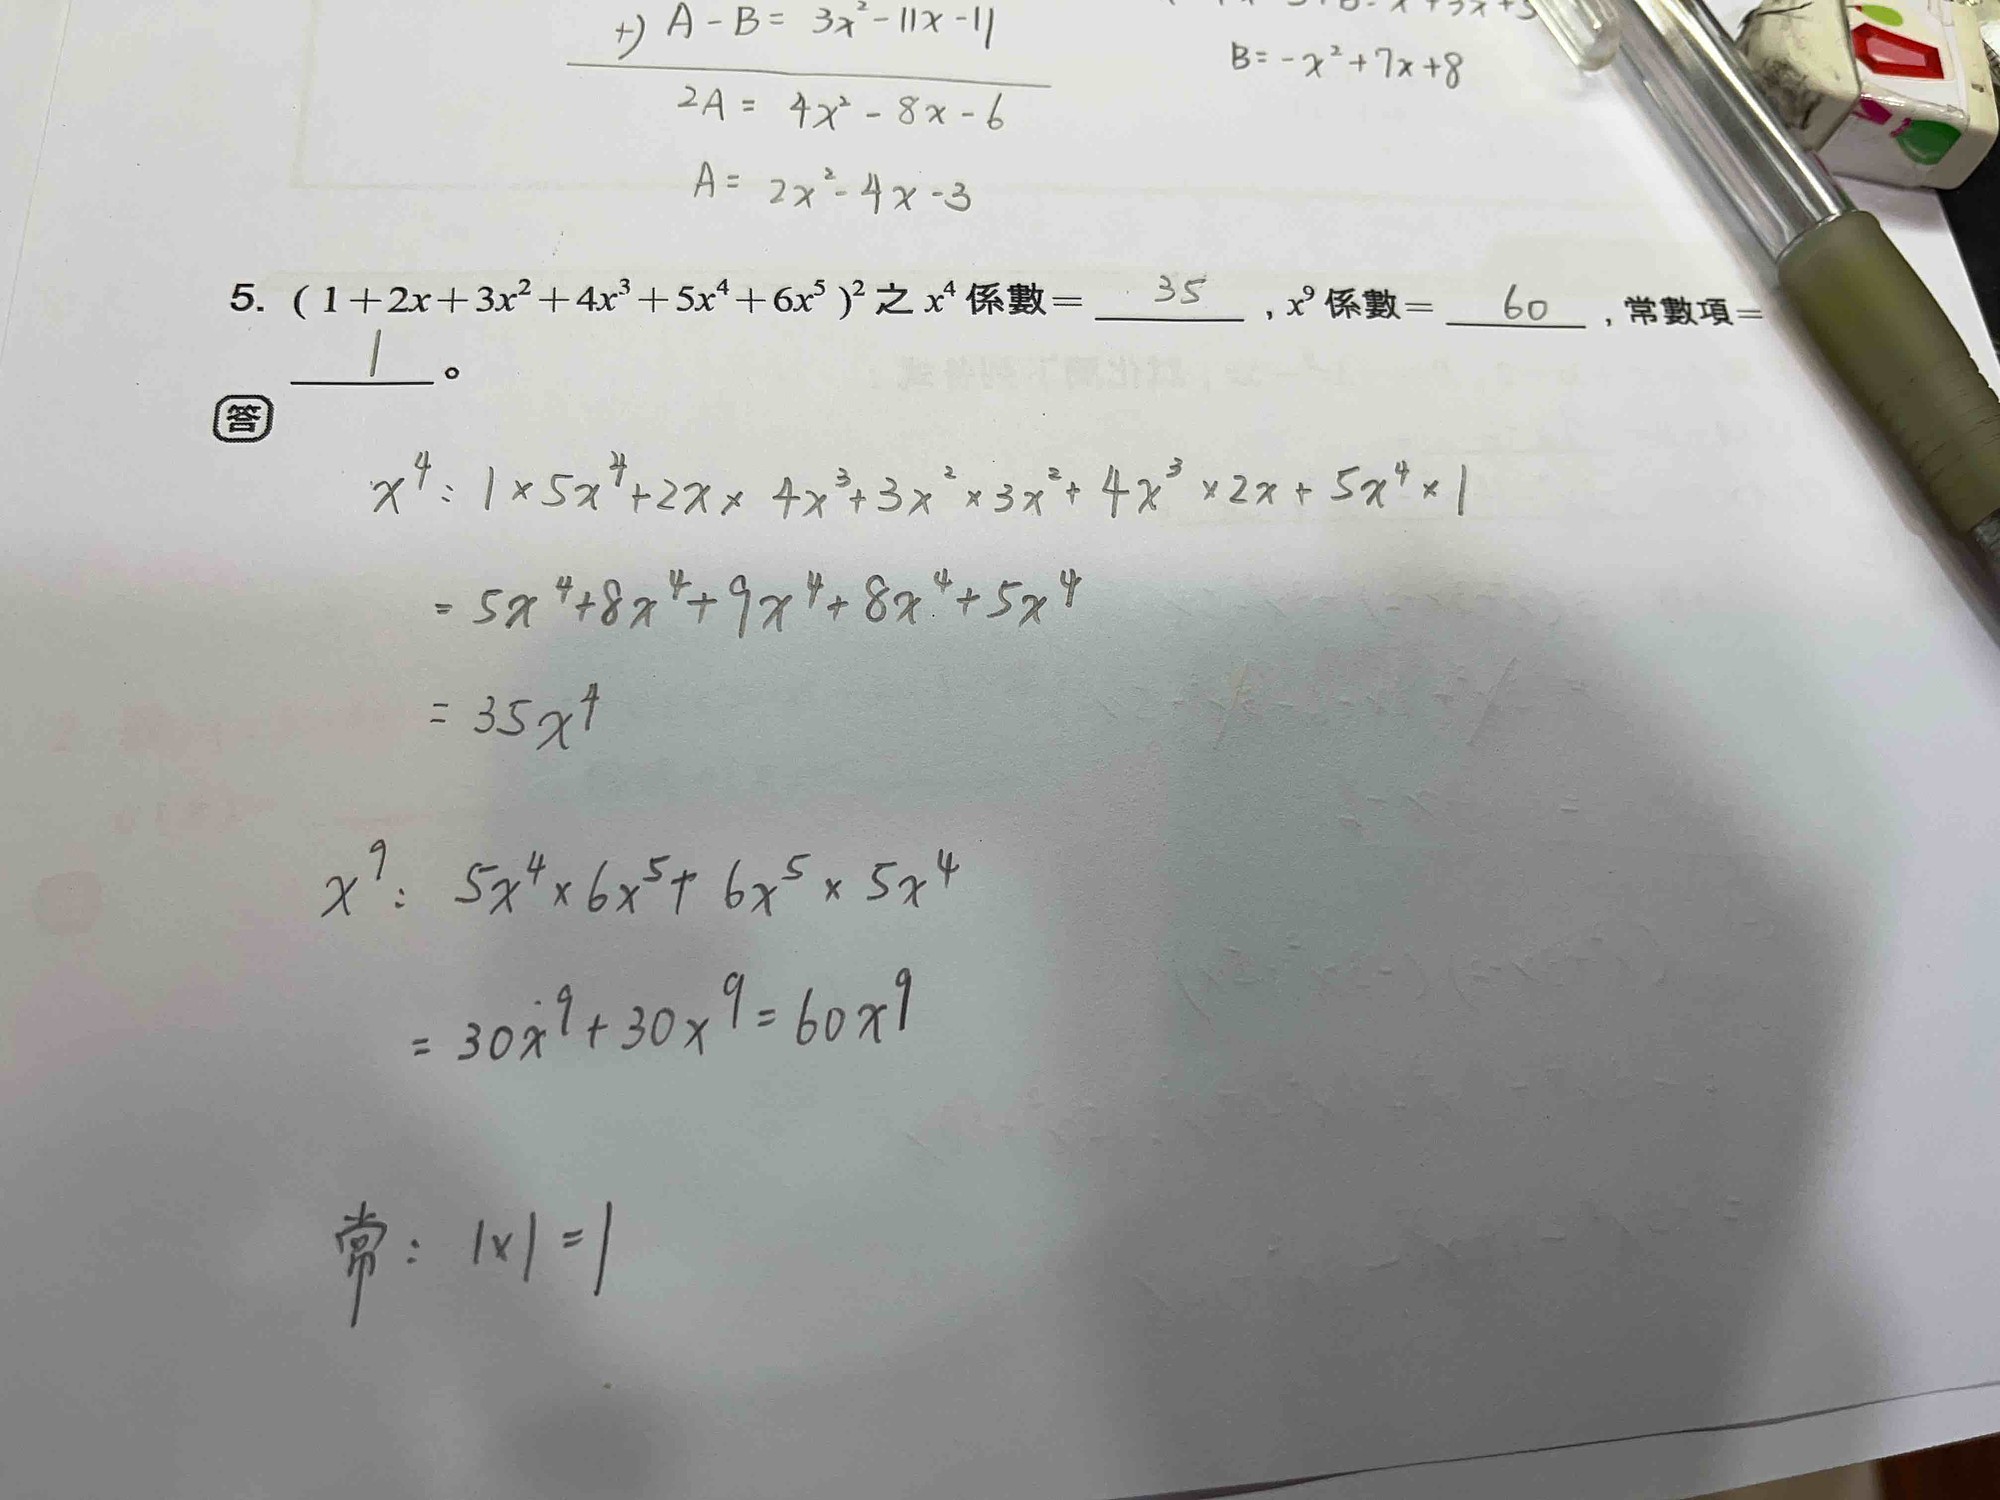 +) A - B = 3x² - 11x - 11
2A = 4x² - 8x - 6
A = 2x² - 4x - 3
B = -x² + 7x + 8
5. (1+2x+3x²+4x³+5x⁴+6x⁵)² 之 x⁴ 係數= 35 , x⁹ 係數= 60 , 常數項=
1 。
答
x⁴: 1 × 5x⁴ + 2x × 4x³ + 3x² × 3x² + 4x³ × 2x + 5x⁴ × 1
= 5x⁴ + 8x⁴ + 9x⁴ + 8x⁴ + 5x⁴
= 35x⁴
x⁹: 5x⁴ × 6x⁵ + 6x⁵ × 5x⁴
= 30x⁹ + 30x⁹ = 60x⁹
常: 1×1 = 1